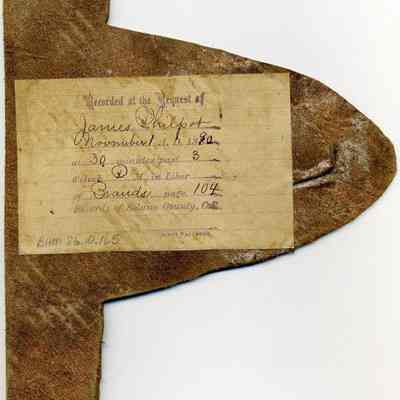 Recorded at the Request of
James Philpot
November 1 A. D. 1880
at 30 minutes past 3
o'clock P M, in Liber
of Brands page 104
Records of Solano County, Cal.
BHM 26.10.165